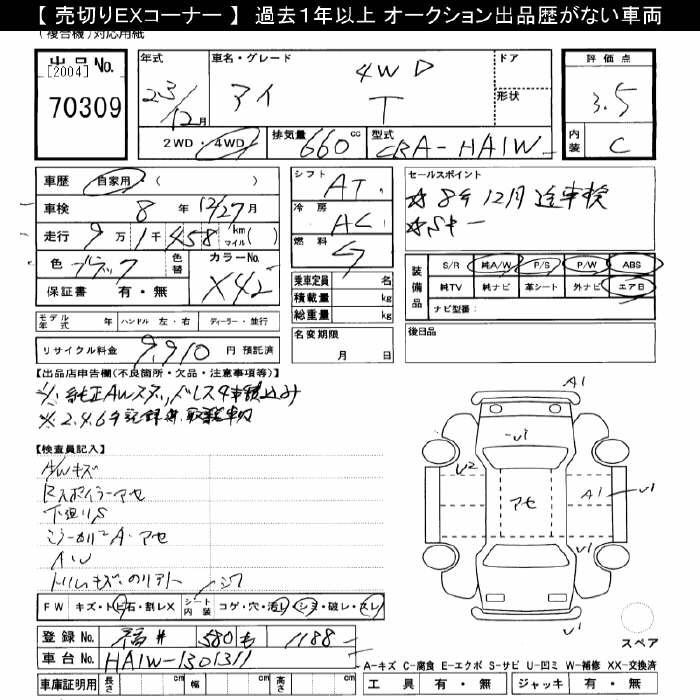 【 売切りEXコーナー 】 過去1年以上 オークション出品歴がない車両
(複合機)対応用紙
出品No.
[2004]
70309
年式 車名・グレード ドア 評価点
23/12月 アイ 4WD T 形状 3.5
2WD・4WD 排気量 660cc 型式 CBA-HA1W 内装 C
車歴 自家用・( )
車検 8年 12/27月
走行 9万1千458 km マイル( )
色 ブラック 色替 カラーNo. X42
保証書 有・無
モデル年式 年 ハンドル 左・右 ディーラー・並行
リサイクル料金 9,910 円 預託済
シフト AT
冷房 AC
燃料 G
乗車定員 名
積載量 kg
総重量 kg
名変期限
月 日
セールスポイント
☆8年12月迄車検
☆Sキー
装備品 S/R 純A/W P/S P/W ABS
純TV 純ナビ 革シート 外ナビ エアB
ナビ型番:
後日品
【出品店申告欄(不良箇所・欠品・注意事項等)】
※純正AWスタッドレス4本積込み
※2.4.6年記録簿、取説車内
【検査員記入】
AWキズ
Rスポイラーアセ
下廻りS
A・アセ
A・U
FW キズ・トビ石・割レX シート内装 コゲ・穴・汚レ・シミ・破レ・スレ
シワ
登録No. 福井 580 も 1188
車台No. HA1W-1301311
車庫証明用 長さ cm 幅 cm 高さ cm
A1
U1
U2
アセ
A1
U1
U1
A1
スペア
A-キズ C-腐食 E-エクボ S-サビ U-凹ミ W-補修 XX-交換済
工具 有・無 ジャッキ 有・無